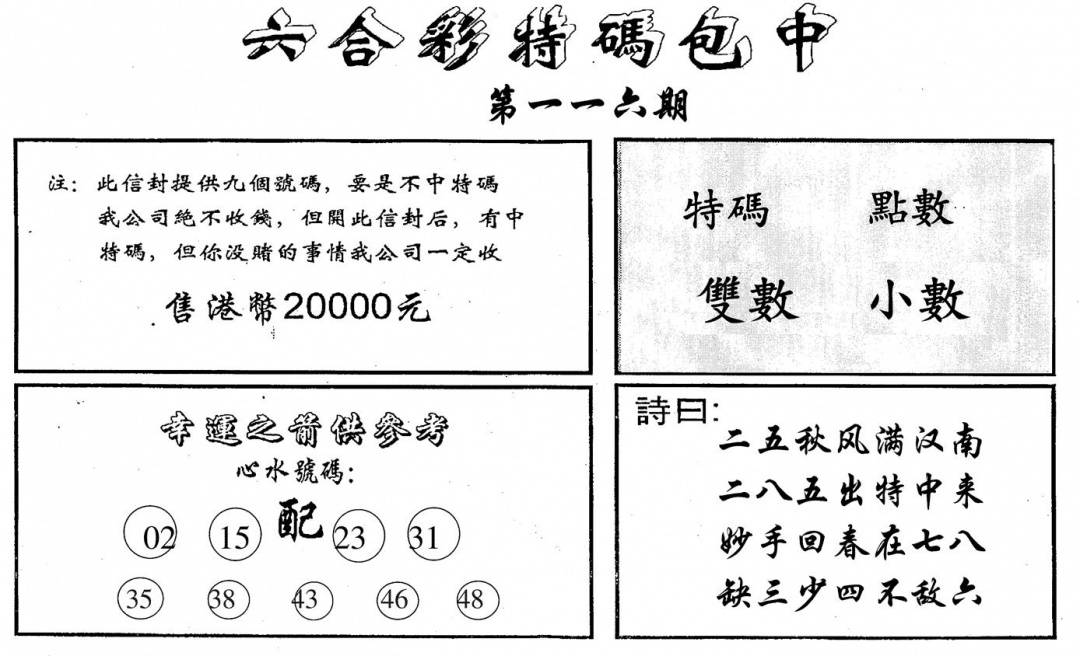 六合彩特碼包中
第一一六期
注：此信封提供九個號碼，要是不中特碼
我公司絕不收錢，但開此信封后，有中
特碼，但你没賭的事情我公司一定收
售港幣20000元
特碼 點數
雙數 小數
幸運之箭供參考
心水號碼：
02 15 配 23 31
35 38 43 46 48
詩曰：
二五秋风满汉南
二八五出特中来
妙手回春在七八
缺三少四不敌六